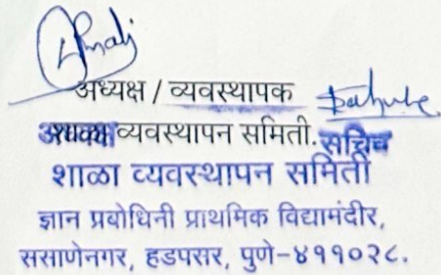 अध्यक्ष / व्यवस्थापक
अध्यक्ष व्यवस्थापन समिती. सचिव
शाळा व्यवस्थापन समिती
ज्ञान प्रबोधिनी प्राथमिक विद्यामंदीर,
ससाणेनगर, हडपसर, पुणे-४११०२८.